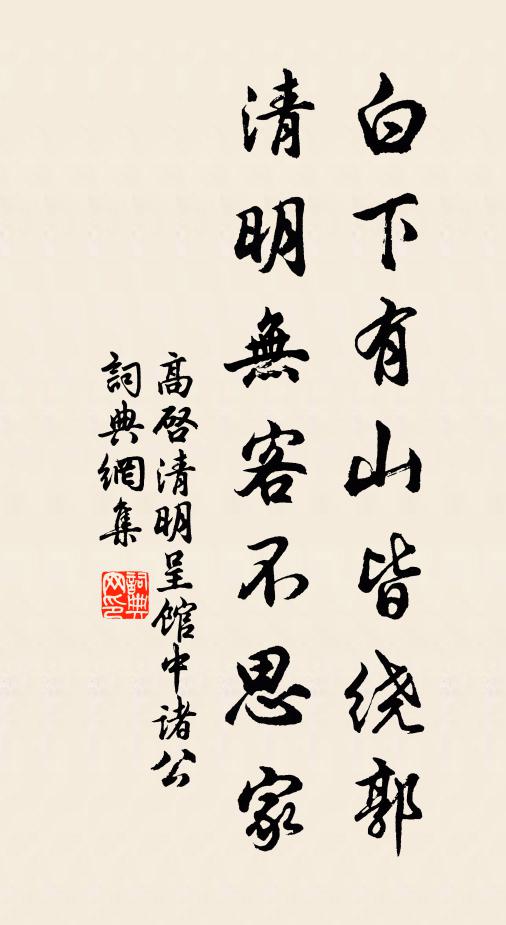 白下有山皆绕郭
清明無客不思家
高啓清明呈館中諸公
詞典網集
詞典
网印